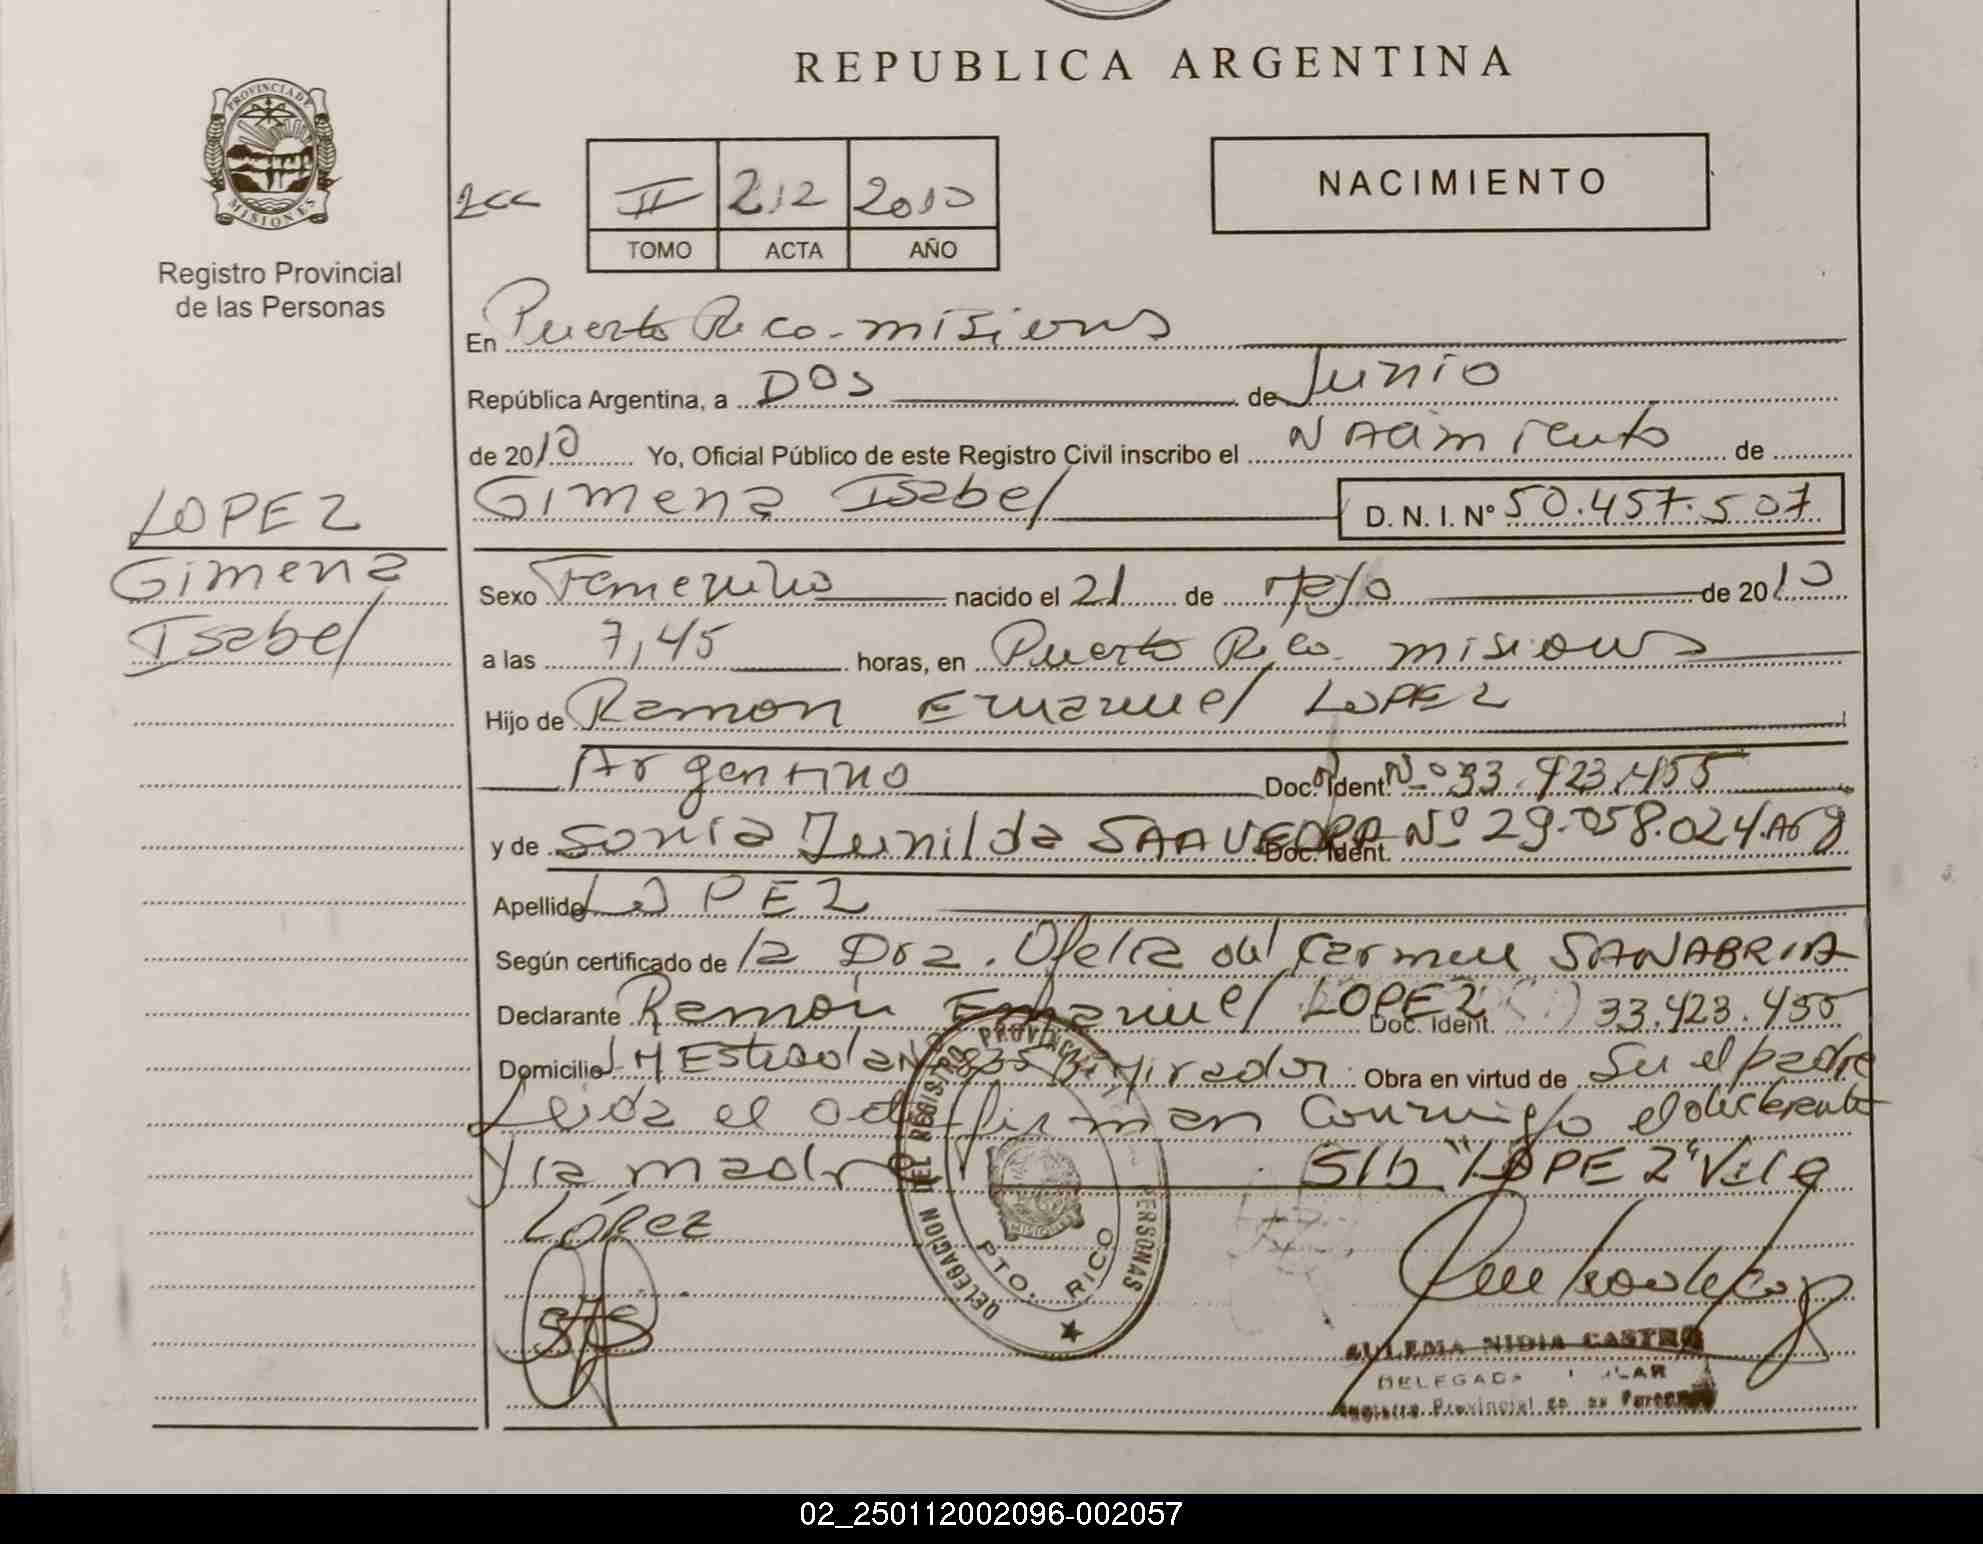 REPUBLICA ARGENTINA
PROVINCIA DE
MISIONES
Registro Provincial
de las Personas
NACIMIENTO
2cc
II 212 2010
TOMO ACTA AÑO
En Puerto Rico - misiones
República Argentina, a DOS de Junio
de 2010 Yo, Oficial Público de este Registro Civil inscribo el NAcimiento de
Gimena Isabel D. N. I. Nº 50.457.507
LOPEZ
Gimena
Isabel
Sexo Femenino nacido el 21 de mayo de 2010
a las 7,45 horas, en Puerto Rico misiones
Hijo de Ramon Emanuel LOPEZ
Argentino Doc. Ident. Nº 33.423.455
y de Sonia Junilda SAAVEDRA Doc. Ident. Nº 29.058.024 Arg
Apellido LOPEZ
Según certificado de la Dra. Ofelia del Carmen SANABRIA
Declarante Ramón Emanuel LOPEZ Doc. Ident. 33.423.455
Domicilio Estrada Mirador Obra en virtud de Su el padre
Leida el acta firman conmigo el declarante
y la madre S/b "LOPEZ" Vale
López
DELEGACION DEL REGISTRO PROVINCIAL PERSONAS
PTO. RICO
ZULEMA NIDIA CASTRO
DELEGADA
Registro Provincial de
02_250112002096-002057